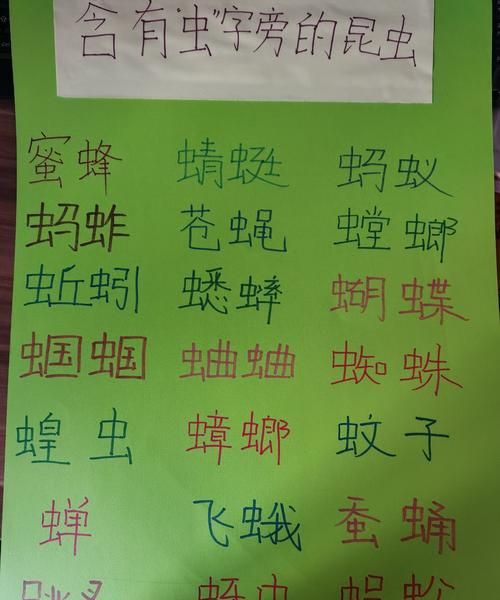 含有"虫"字旁的昆虫
蜜蜂 蜻蜓 蚂蚁
蚂蚱 苍蝇 螳螂
蚯蚓 蟋蟀 蝴蝶
蝈蝈 蛐蛐 蜘蛛
蝗虫 蟑螂 蚊子
蝉 飞蛾 蚕蛹